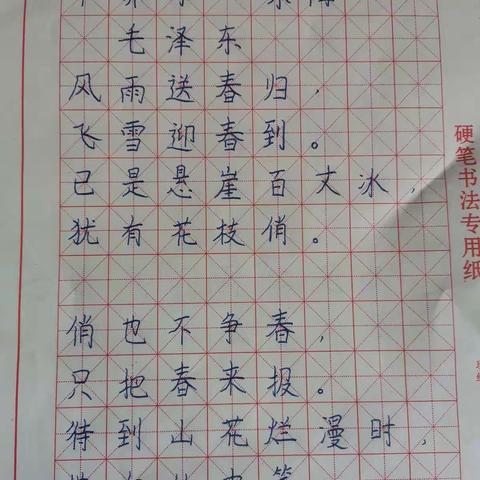 毛泽东
风雨送春归，
飞雪迎春到。
已是悬崖百丈冰，
犹有花枝俏。
俏也不争春，
只把春来报。
待到山花烂漫时，
硬笔书法专用纸